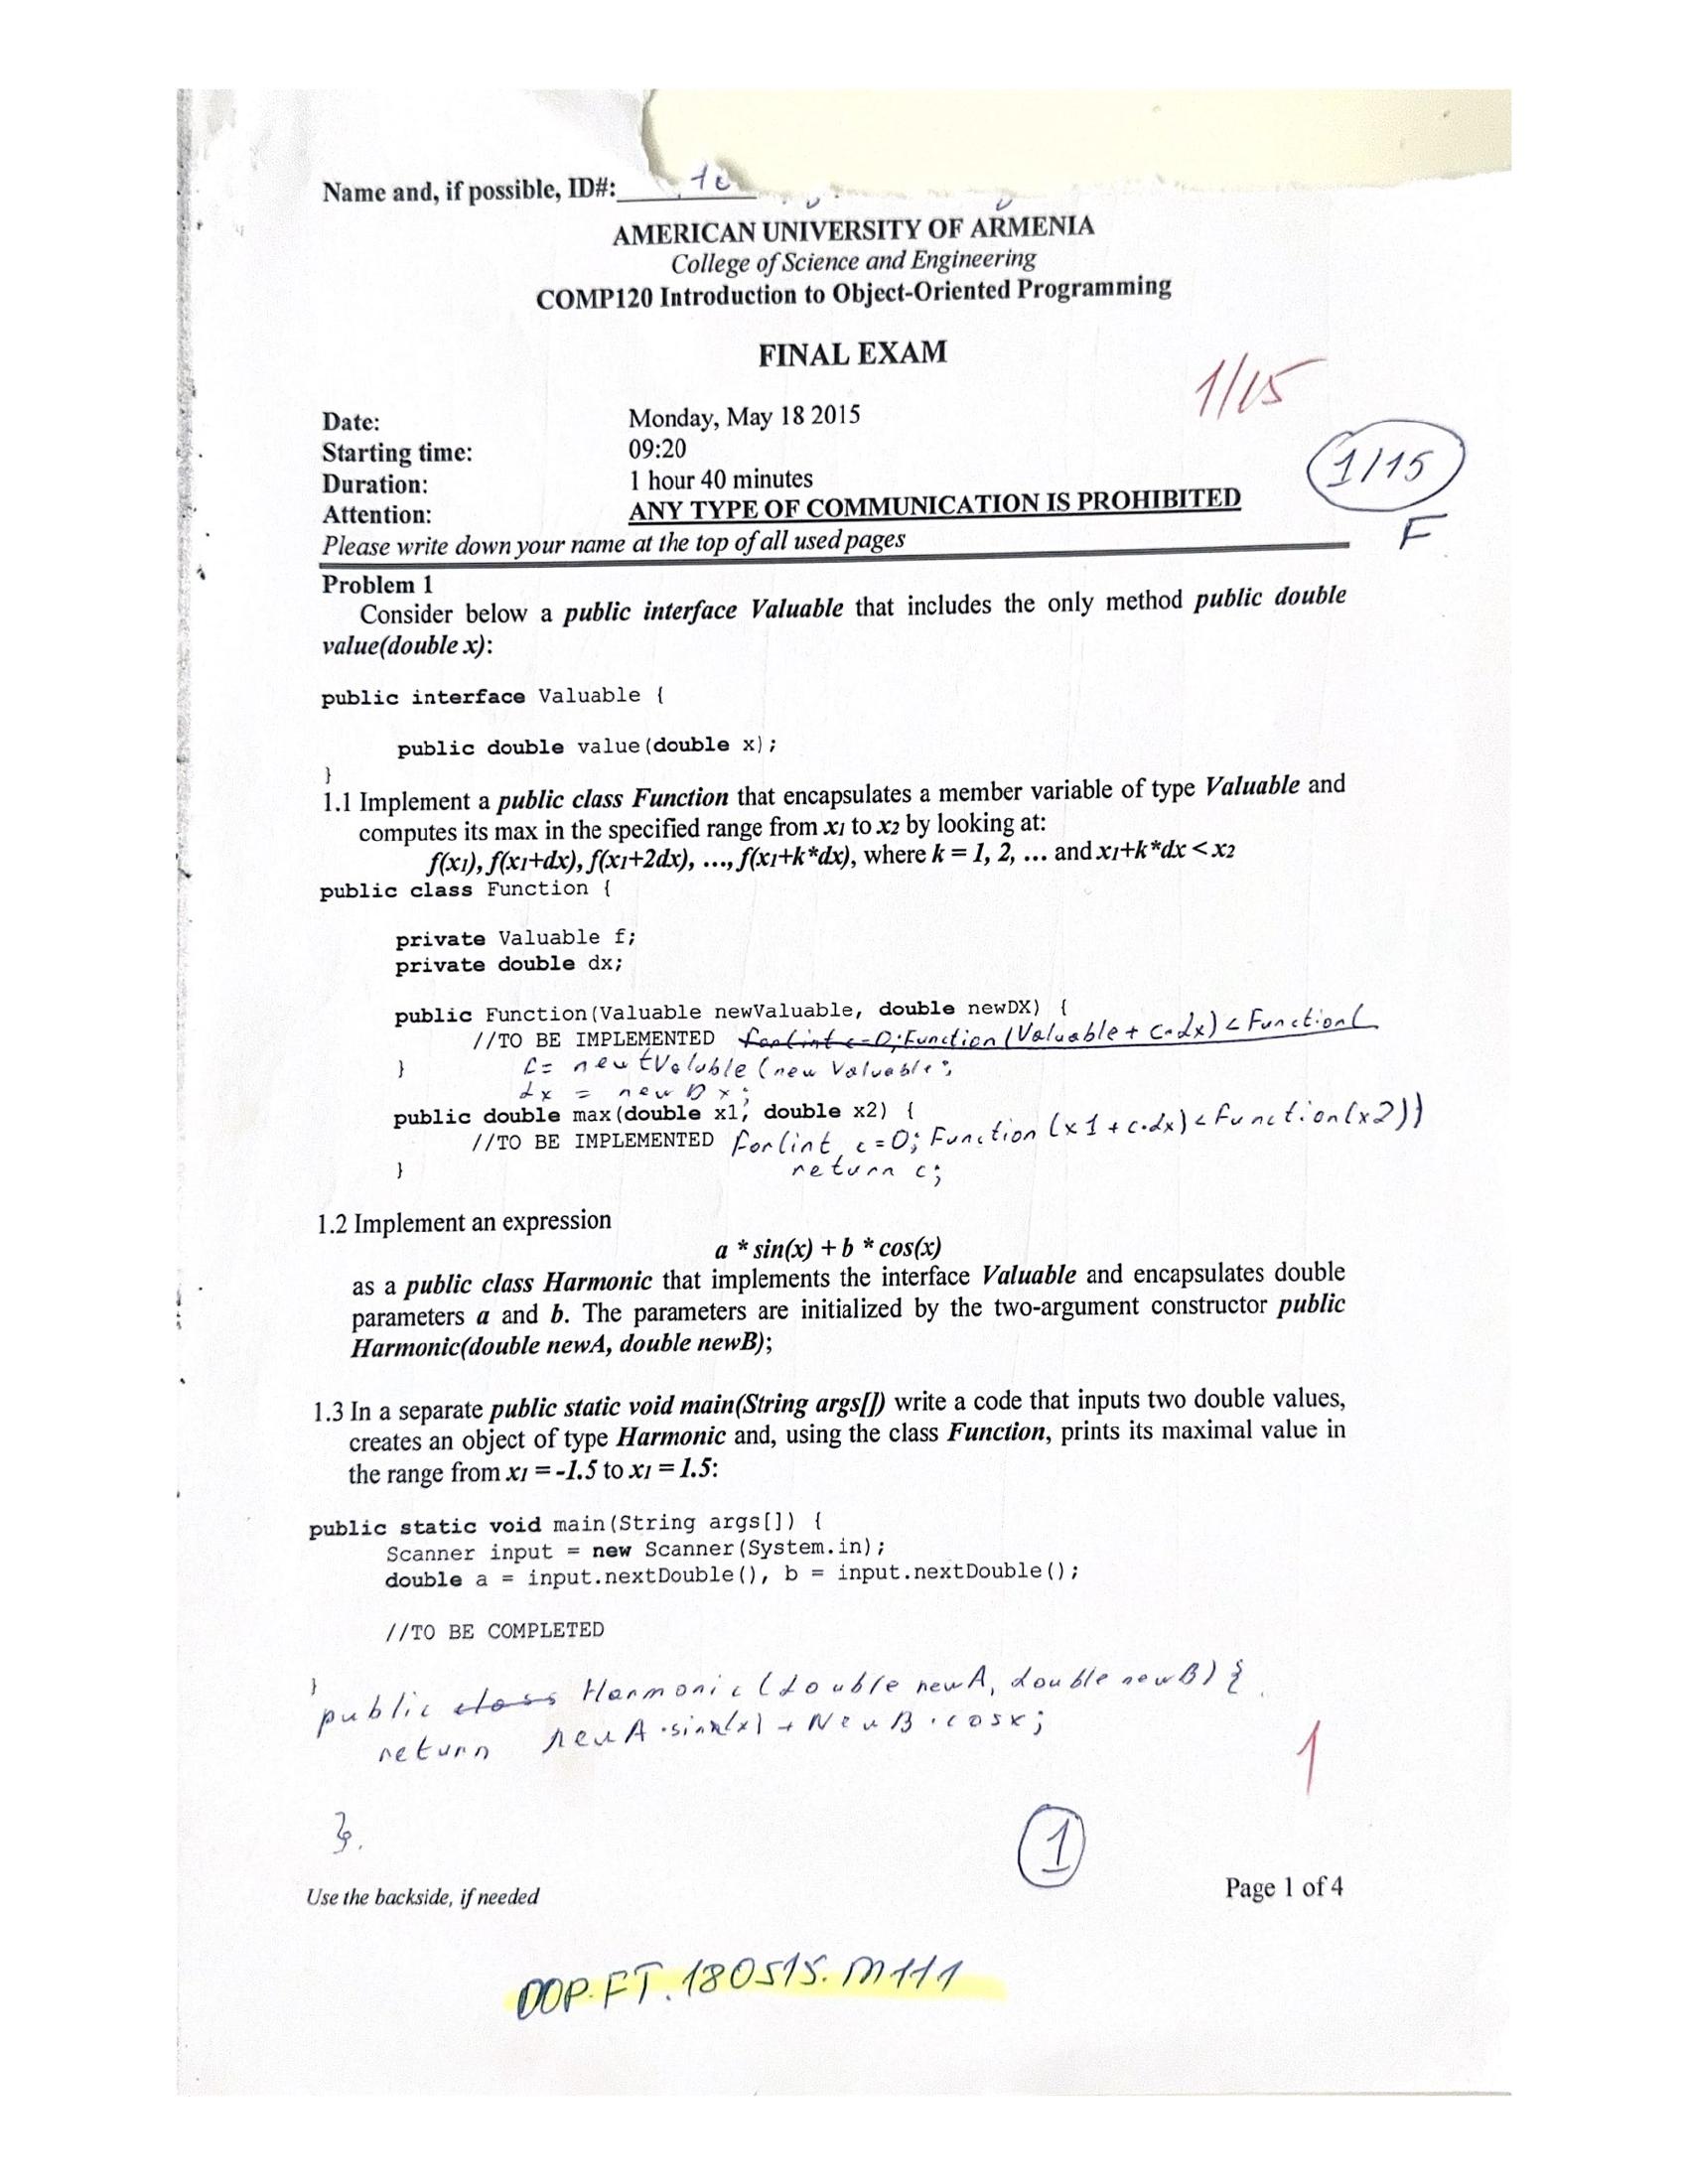 Name and, if possible, ID#:
AMERICAN UNIVERSITY OF ARMENIA
College of Science and Engineering
COMP120 Introduction to Object-Oriented Programming
FINAL EXAM
1/15
Date: Monday, May 18 2015
Starting time: 09:20
1/15
Duration: 1 hour 40 minutes
Attention: ANY TYPE OF COMMUNICATION IS PROHIBITED
F
Please write down your name at the top of all used pages
Problem 1
Consider below a public interface Valuable that includes the only method public double
value(double x):
public interface Valuable {
public double value(double x);
}
1.1 Implement a public class Function that encapsulates a member variable of type Valuable and
computes its max in the specified range from x1 to x2 by looking at:
f(x1), f(x1+dx), f(x1+2dx), ..., f(x1+k*dx), where k = 1, 2, ... and x1+k*dx < x2
public class Function {
private Valuable f;
private double dx;
public Function(Valuable newValuable, double newDX) {
//TO BE IMPLEMENTED for(int c=0; Function(Valuable + c·dx) < Function(
} f = new (new Valuable;
dx = new Dx;
public double max(double x1, double x2) {
//TO BE IMPLEMENTED for(int c=0; Function (x1 + c·dx) < Function(x2))
} return c;
1.2 Implement an expression
a * sin(x) + b * cos(x)
as a public class Harmonic that implements the interface Valuable and encapsulates double
parameters a and b. The parameters are initialized by the two-argument constructor public
Harmonic(double newA, double newB);
1.3 In a separate public static void main(String args[]) write a code that inputs two double values,
creates an object of type Harmonic and, using the class Function, prints its maximal value in
the range from x1 = -1.5 to x1 = 1.5:
public static void main(String args[]) {
Scanner input = new Scanner(System.in);
double a = input.nextDouble(), b = input.nextDouble();
//TO BE COMPLETED
}
public class Harmonic(double newA, double newB) {
return newA·sin(x) + NewB·cosx;
1
}.
1
Use the backside, if needed Page 1 of 4
OOP.FT.180515.M111